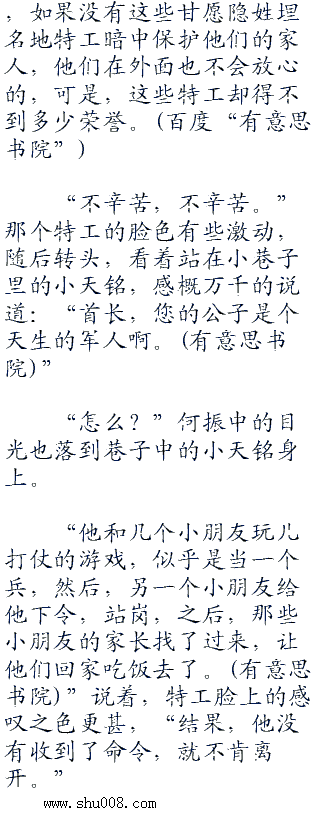 ，如果没有这些甘愿隐姓埋
名地特工暗中保护他们的家
人，他们在外面也不会放心
的，可是，这些特工却得不
到多少荣誉。(百度“有意思
书院”)
“不辛苦，不辛苦。”
那个特工的脸色有些激动，
随后转头，看着站在小巷子
里的小天铭，感概万千的说
道：“首长，您的公子是个
天生的军人啊。(有意思书
院)”
“怎么？”何振中的目
光也落到巷子中的小天铭身
上。
“他和几个小朋友玩儿
打仗的游戏，似乎是当一个
兵，然后，另一个小朋友给
他下令，站岗，之后，那些
小朋友的家长找了过来，让
他们回家吃饭去了。(有意思
书院)”说着，特工脸上的感
叹之色更甚，“结果，他没
有收到了命令，就不肯离
开。”
www.shu008.com